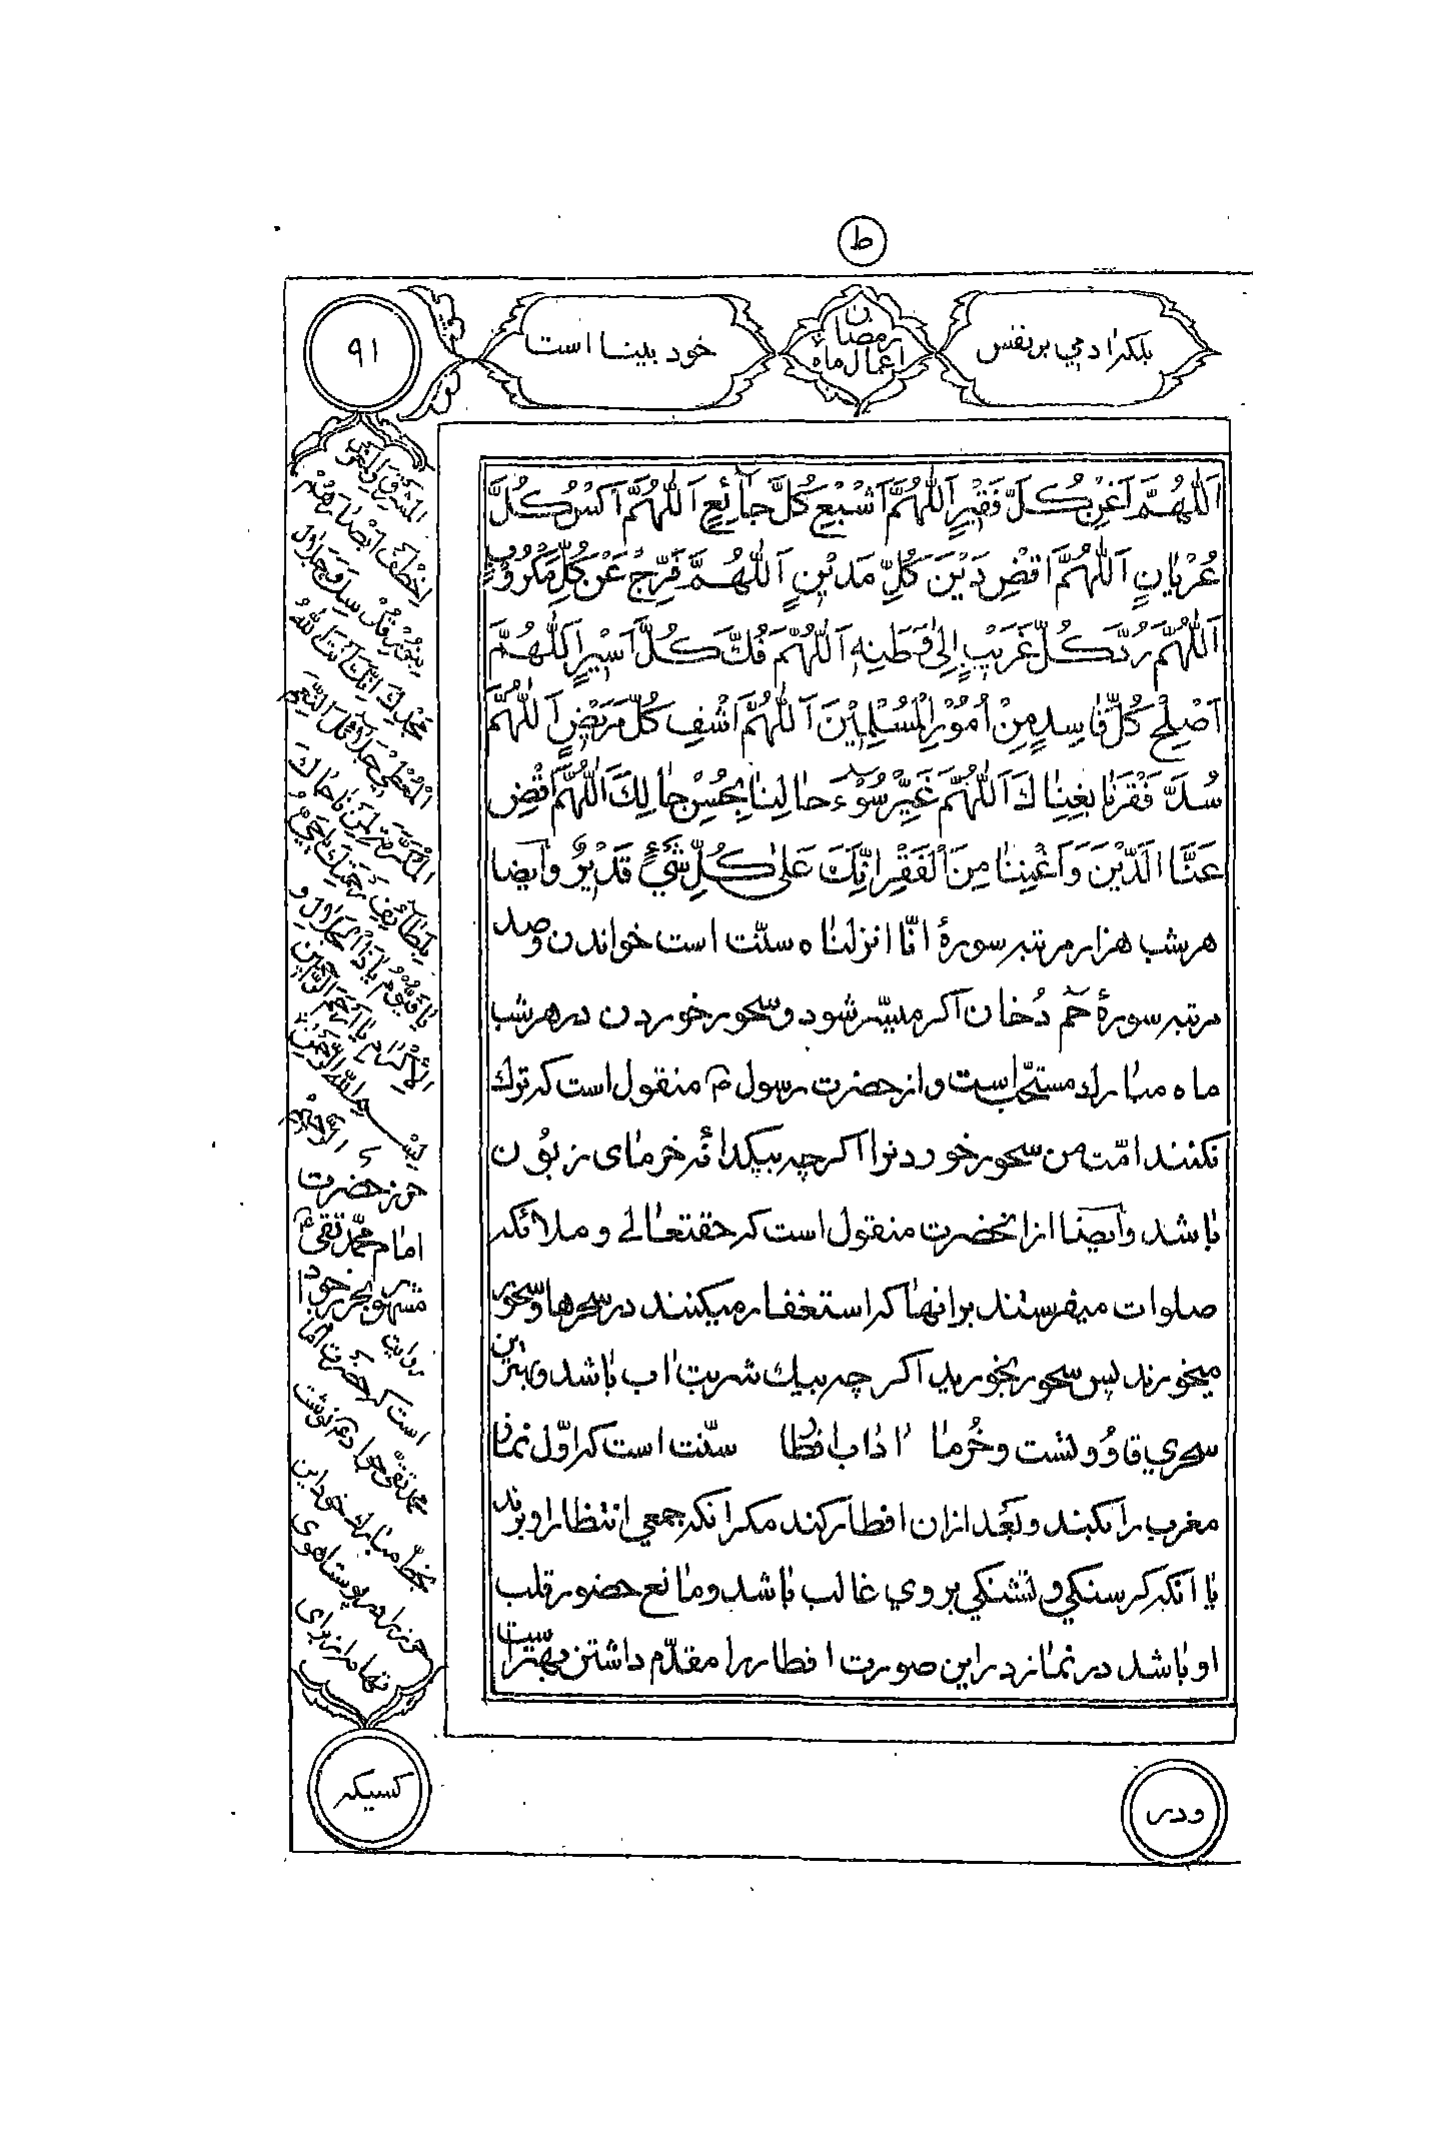 ط
بلکه ادمي بر نفس
اعمال ماه رمضان
خود بینا است
۹۱
اَللّٰهُمَّ اَغْنِ كُلَّ فَقِيْرٍ اَللّٰهُمَّ اَشْبِعْ كُلَّ جٰٓائِعٍ اَللّٰهُمَّ اكْسُ كُلَّ
عُرْيٰانٍ اَللّٰهُمَّ اقْضِ دَيْنَ كُلِّ مَدْيُنٍ اَللّٰهُمَّ فَرِّجْ عَنْ كُلِّ مَكْرُوْبٍ
اَللّٰهُمَّ رُدَّ كُلَّ غَرَيْبٍ اِلىٰ وَطَنِهِ اَللّٰهُمَّ فُكَّ كُلَّ اَسْيِرٍ اَللّٰهُمَّ
اَصْلِحْ كُلَّ فٰاسِدٍ مِنْ اُمُوْرِ الْمُسْلِمِيْنَ اَللّٰهُمَّ اشْفِ كُلَّ مَرَيْضٍ اَللّٰهُمَّ
سُدَّ فَقْرَنٰا بِغِنٰاكَ اَللّٰهُمَّ غَيِّرْ سُوْٓءَ حٰالِنٰا بِحُسْنِ حٰالِكَ اَللّٰهُمَّ اقْضِ
عَنَّا الَدَّيْنَ وَاَغْنِنٰا مِنَ الْفَقْرِ اِنَّكَ عَلىٰ كُلِّ شَيْءٍ قَدْيِرٌ وایضا
هر شب هزار مرتبه سورهٔ انّا انزلنٰاه سنّت است خواندن وصد
مرتبه سورهٔ حٰم دُخان اکر میسّر شود وسحور خوردن در هر شب
ماه مبٰارك مستحّب است و از حضرت رسول ص منقول است که ترك
نکنند امّت من سحور خوردنرا اکرچه بیکدانٔه خرمٰای زبوُن
بٰاشد وایضا از انحضرت منقول است که حقتعٰالے و ملائکه
صلوات میفرستند بر انهٰا که استغفار میکنند در سحرها وسحور
میخورند پس سحور بخورید اکر چه بیك شربت اب بٰاشد وبهترین
سحري قاوُوت است وخُرمٰا اداب افطار سنّت است که اوّل نماز
مغرب را بکند وبَعد ازان افطار کند مکر انکه جمعي انتظار او برند
یٰا انکه کرسنکي و تشنکي بر وي غالب بٰاشد ومٰانع حضور قلب
او بٰاشد در نمٰاز در این صورت افطار را مقدّم داشتن بهتر است
المَشْرِقِ وَالمَغْرِبِ
اِخْطَفْ اَبْصٰارَهُمْ
بِنُوْرِ قُدْسِكَ وَجَلالِ
مَجْدِكَ اِنَّكَ اَنْتَ اللّٰهُ
يٰا قَيُّوْمُ يٰا ذَا الْجَلٰالِ و
الْاِكْرٰامِ يٰا اَرْحَمَ الرّٰاحِمين
بِسْمِ اللّٰهِ الرَّحْمٰنِ
الرَّحِيْمِ
حرز حضرت
امٰام محمّد تقی ع
مشهور بحرز جواد
روایت
است که حضرت امٰام
محمّد تقی جواد ع نوشت
بخطّ مبٰارك خود این
کسیکه
ودر